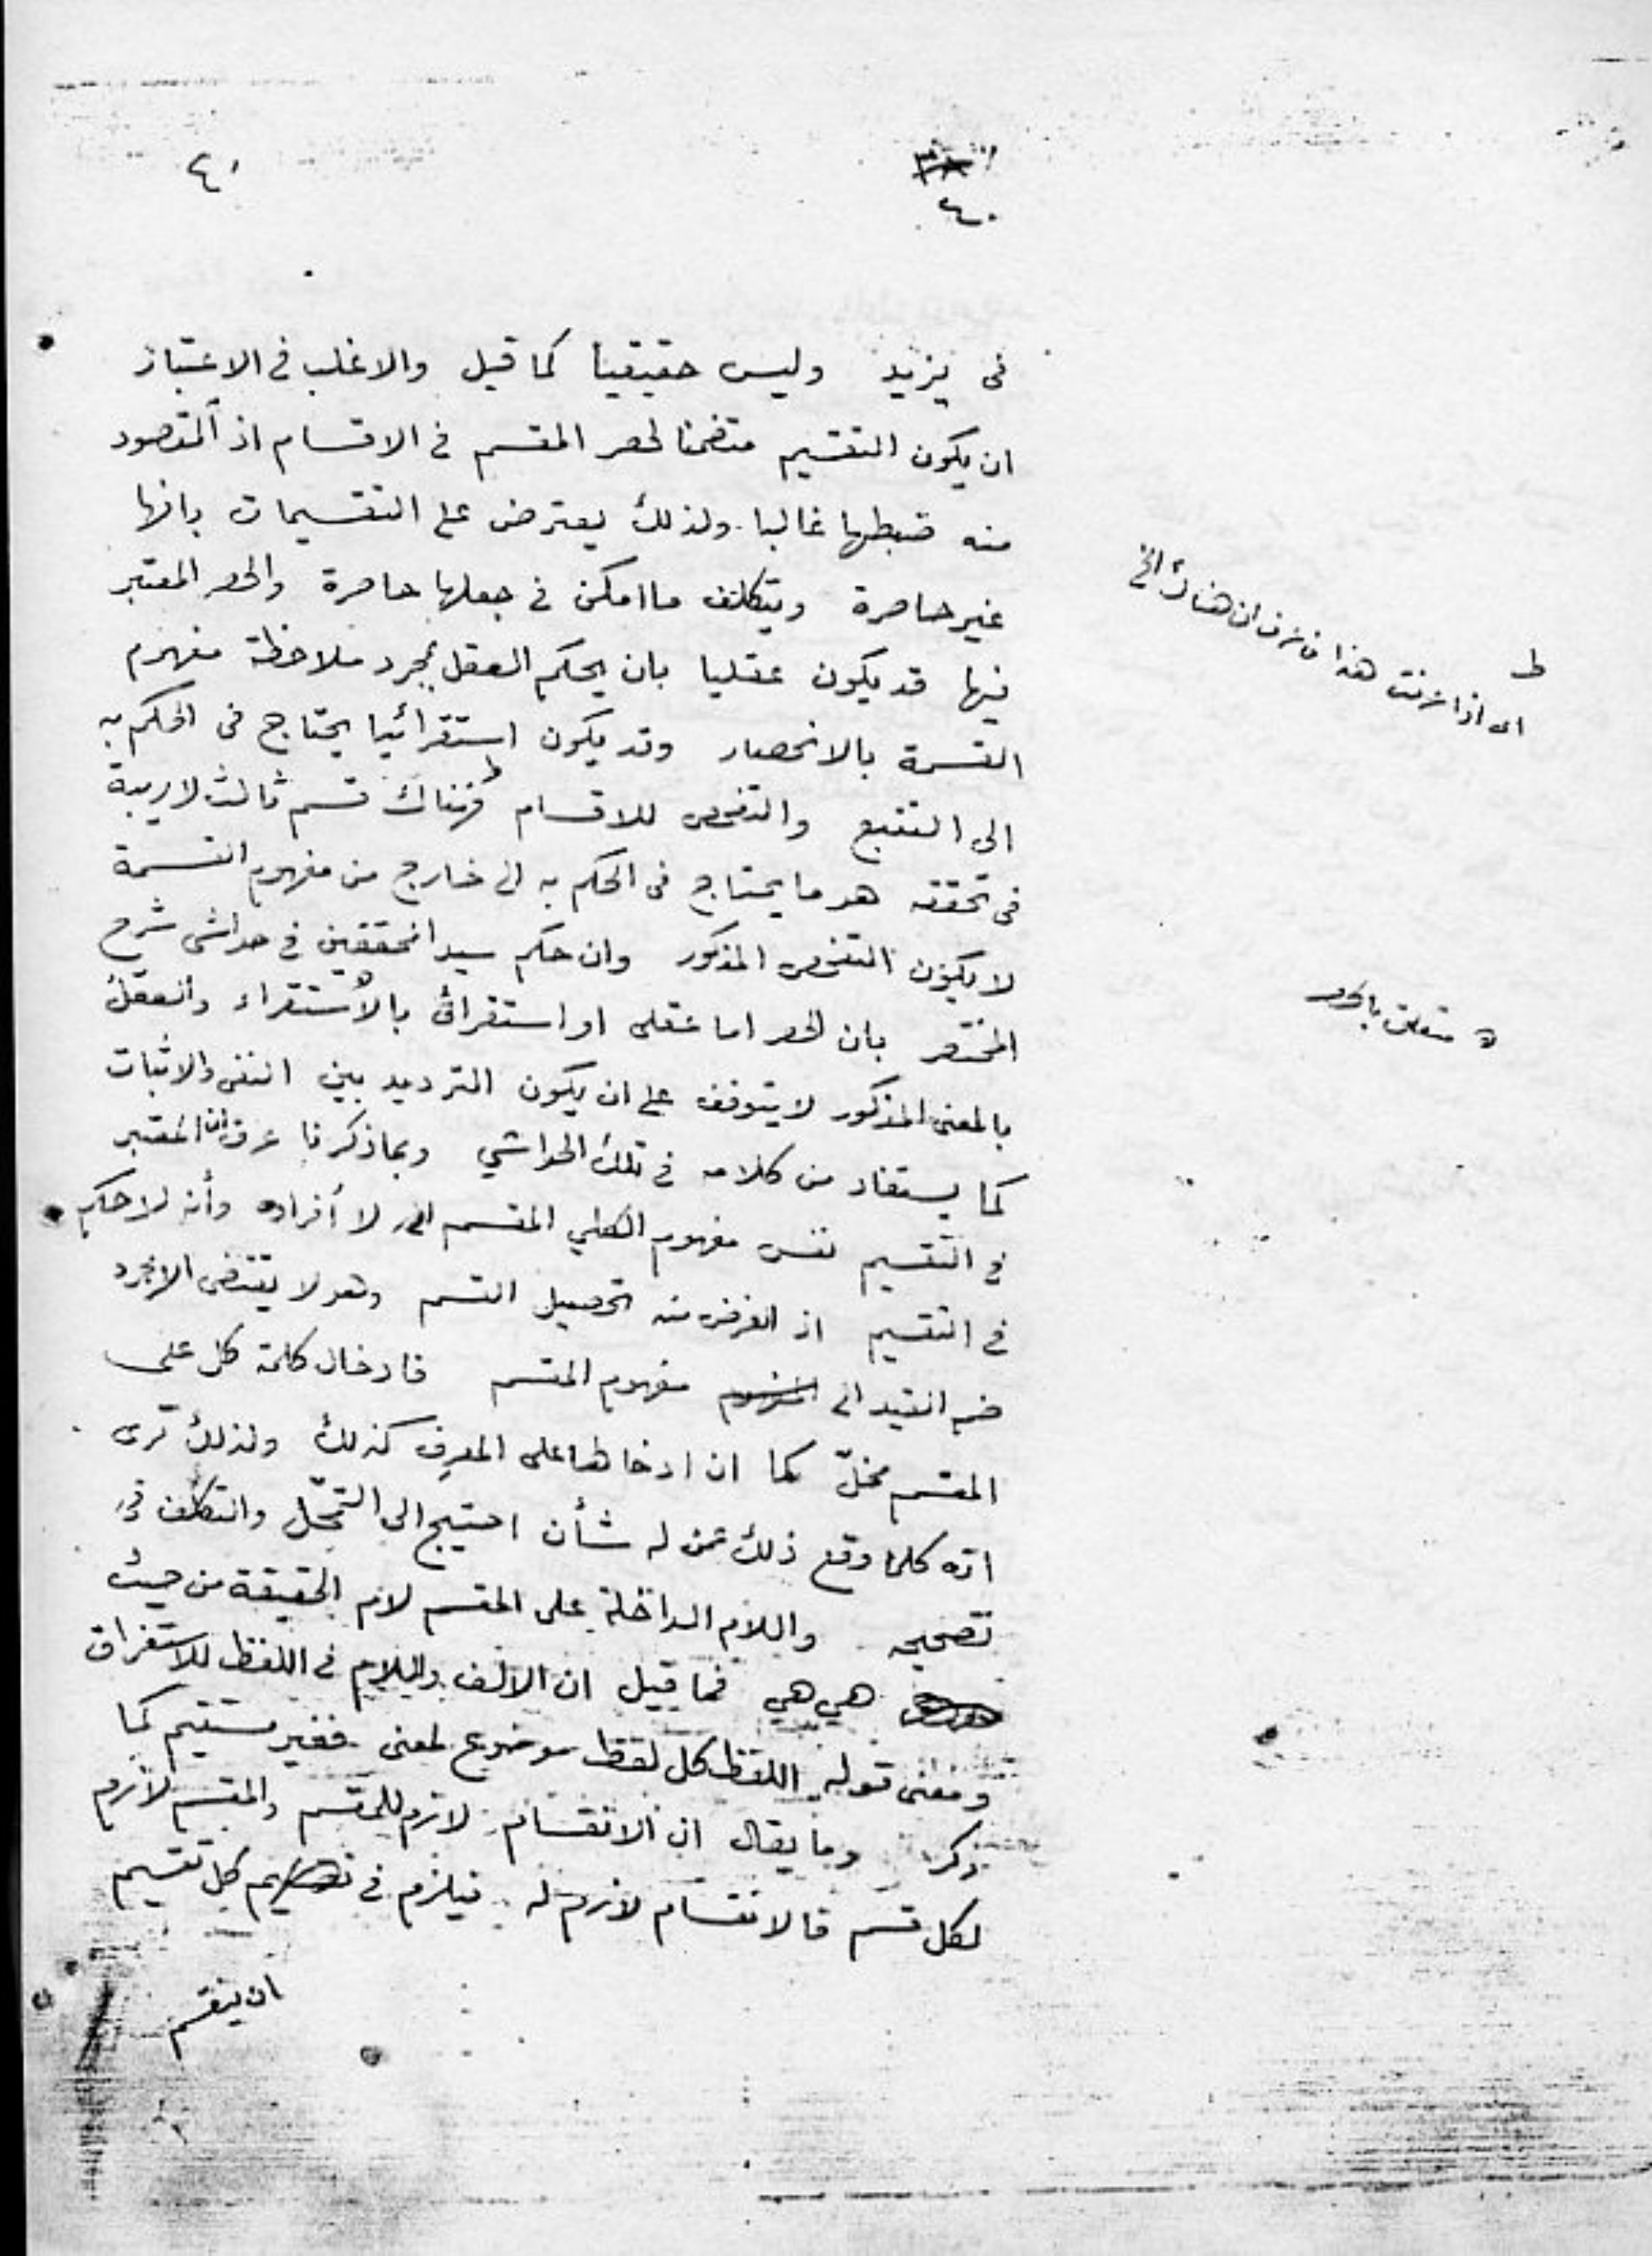 ٤٠
٤٠
فى يزيد وليس حقيقيا كما قيل والاغلب في الاعتبار
ان يكون التقسيم متضمنا لحصر المقسم في الاقسام اذ المقصود
منه ضبطها غالبا ولذلك يعترض على التقسيمات بانها
غير حاصرة ويتكلف ما امكن في جعلها حاصرة والحصر المعتبر
فيها قد يكون عقليا بان يحكم العقل بمجرد ملاحظة مفهوم
القسمة بالانحصار وقد يكون استقرائيا يحتاج فى الحكم به
الى التتبع والتفحص للاقسام فهناك قسم ثالث لا ريبة
فى تحققه هو ما يحتاج فى الحكم به الى خارج من مفهوم القسمة
لا يكون التفحص المذكور وان حكم سيد المحققين في حواشى شرح
المختصر بان الحصر اما عقلى او استقرائى بالاستقراء والعقل
بالمعنى المذكور لا يتوقف على ان يكون الترديد بين النفى والاثبات
كما يستفاد من كلامه في تلك الحواشي وبما ذكرنا عرف ان المعتبر
في التقسيم نفس مفهوم الكلي المقسم لا أفراده وأنه لا حكم
في التقسيم اذ الغرض منه تحصيل القسم وهو لا يقتضى الا مجرد
ضم القيد الى مفهوم المقسم فادخال كلمة كل على
المقسم مخلّ كما ان ادخالها على المعرف كذلك ولذلك ترى
انه كلما وقع ذلك ممن له شأن احتيج الى التمحّل والتكلف في
تصحيحه واللام الداخلة على المقسم لام الحقيقة من حيث
هي هي فما قيل ان الالف واللام في اللفظ للاستغراق
ومعنى قوله اللفظ كل لفظ موضوع لمعنى فغير مستقيم كما
ذكر وما يقال ان الانقسام لازم للمقسم والمقسم لازم
لكل قسم فالانقسام لازم له فيلزم في كل تقسيم
ان ينقسم
ط
اى اذا عرفت هذا فاعرف ان هناك الخ
ه متعلق بالحصر